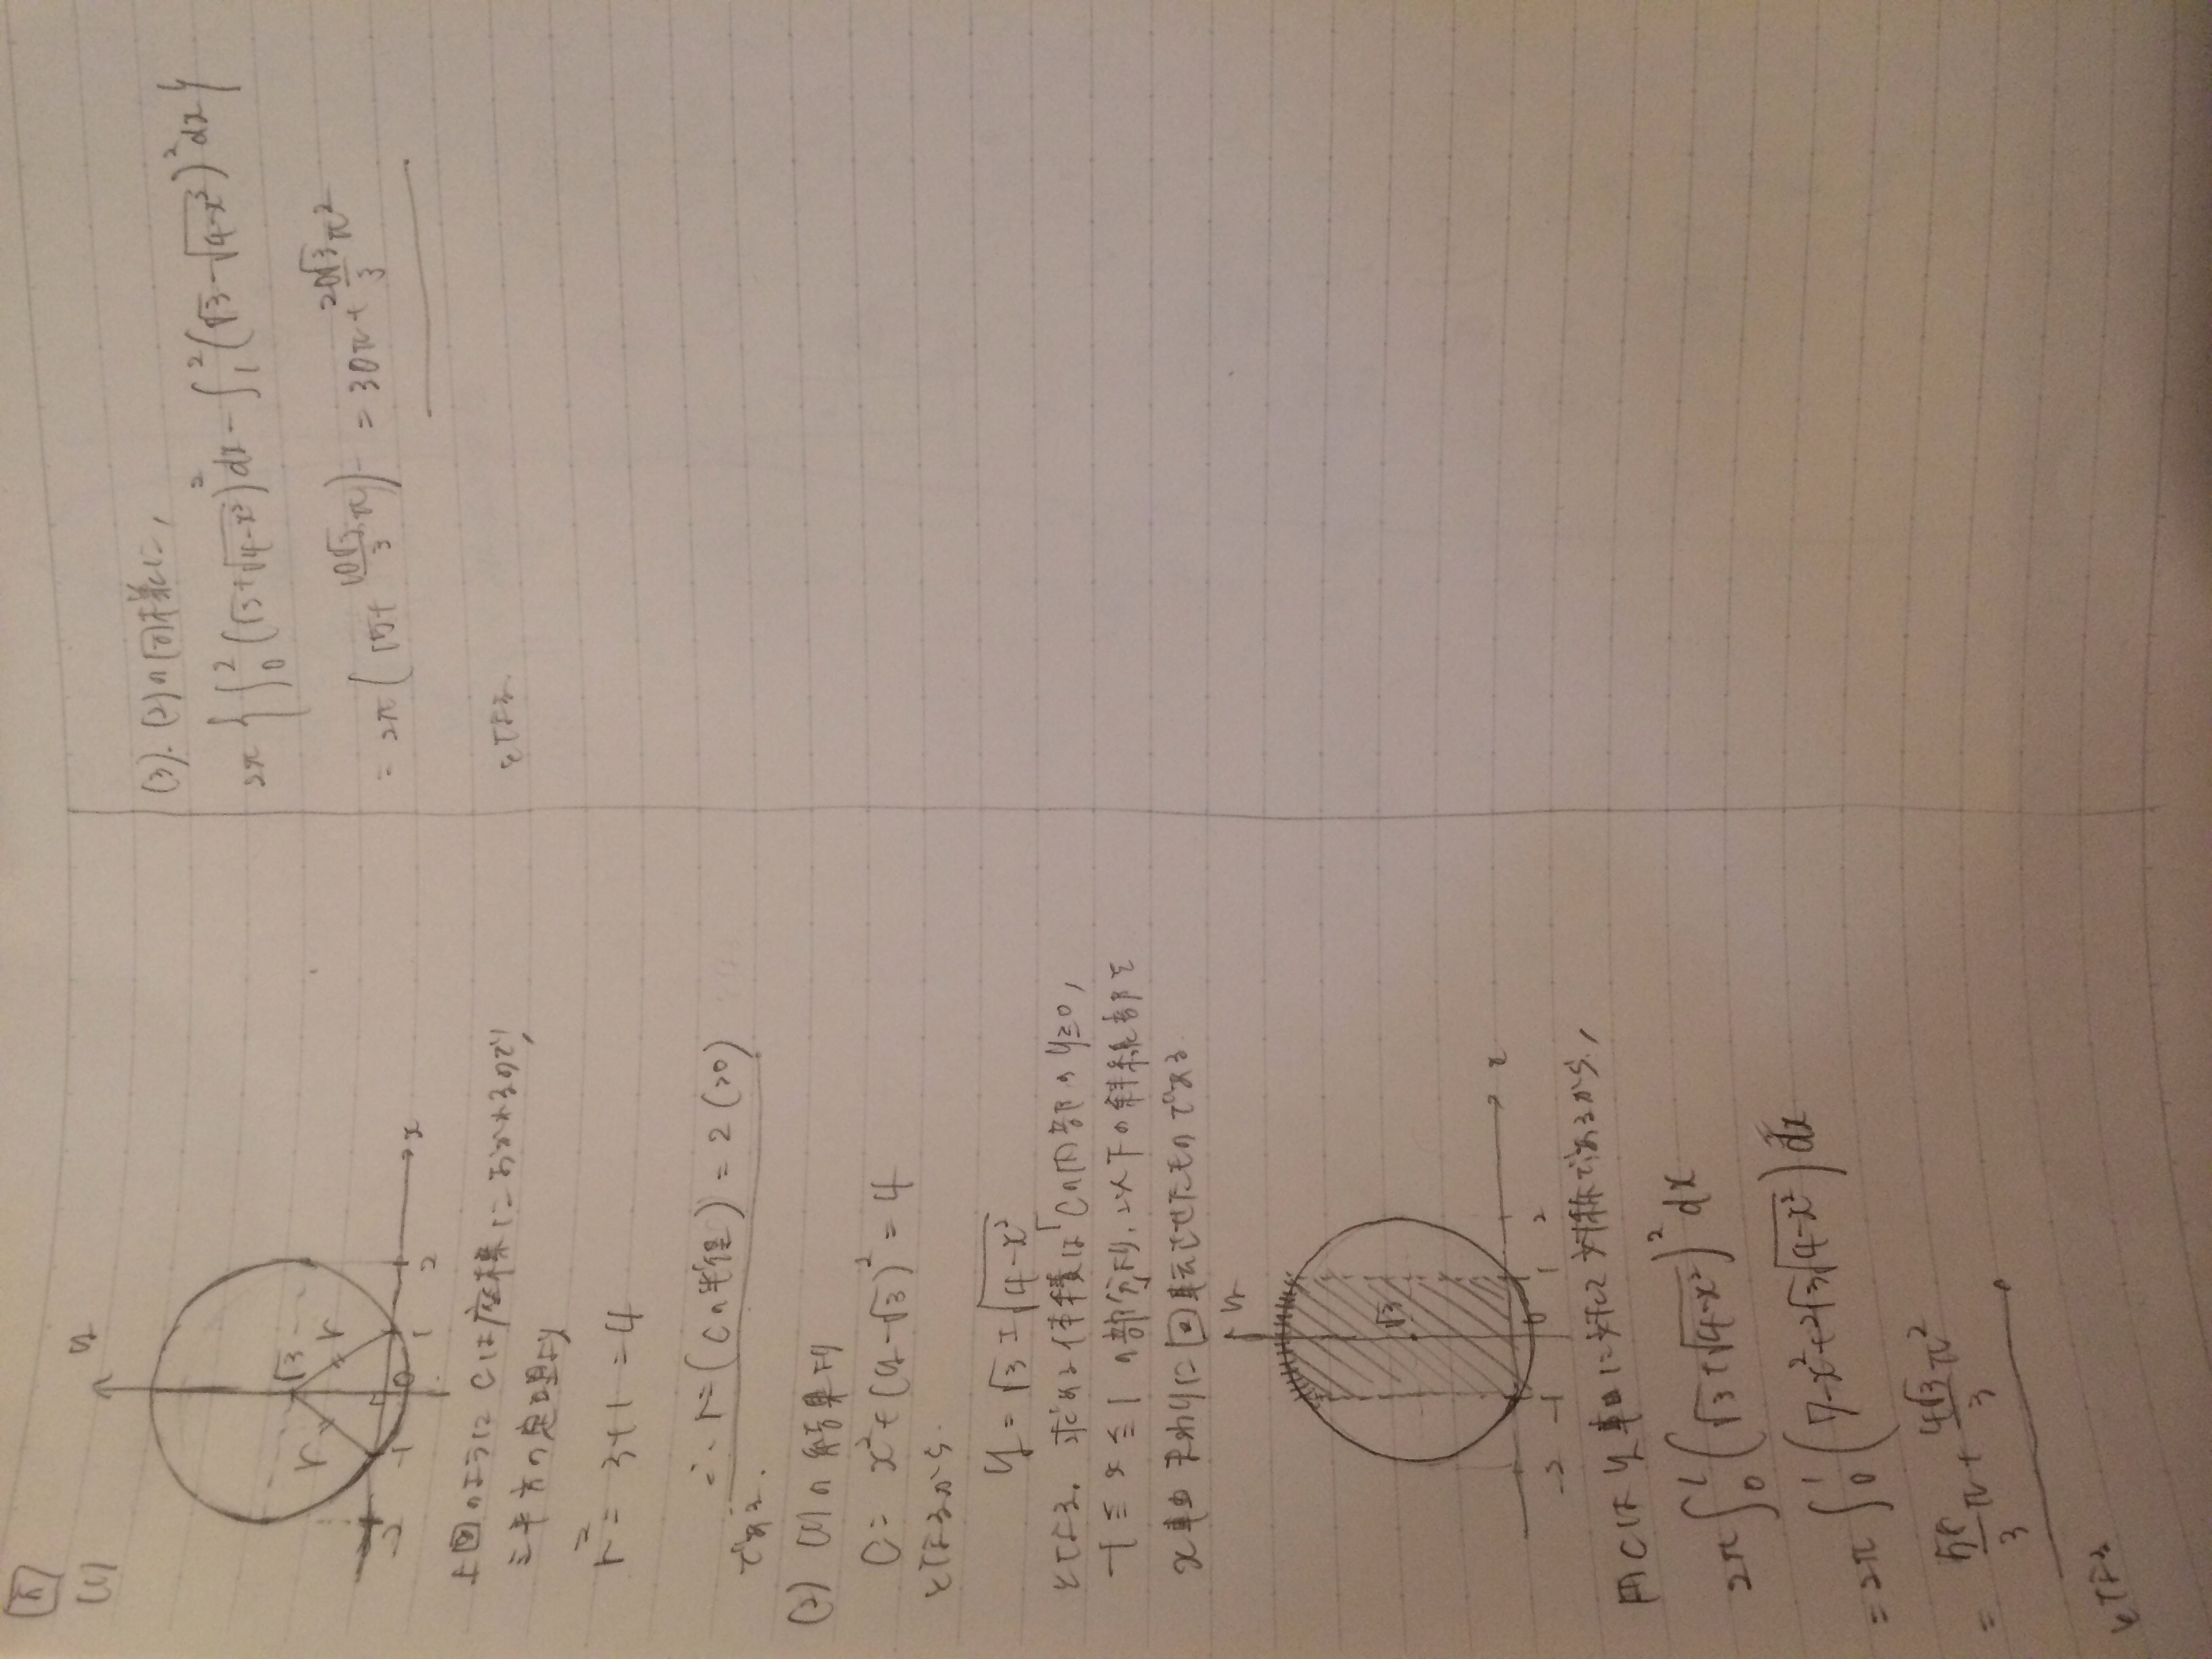 (1)
y
√3
r
r
-2
-1
0
1
2
x
上図のようにCは座標におかれるので,
三平方の定理より
r² = 3+1 = 4
∴ r = (Cの半径) = 2 (>0)
である.
(2) (1)の結果より
C: x²+(y-√3)² = 4
となるから.
y = √3 ± √4-x²
となる. 求める体積は「Cの内部のy≧0,
-1≦x≦1の部分」, 以下の斜線部を
x軸まわりに回転させたものである
y
√3
-2
-1
0
1
2
x
円Cはy軸に対して対称であるから,
2π∫₀¹(√3+√4-x²)²dx
=2π∫₀¹(7-x²+2√3√4-x²)dx
= π + 4√3/3 π²
となる
(3). (2)の同様に,
2π{∫₀²(√3+√4-x²)²dx-∫₁²(√3-√4-x²)²dx}
= 2π(15+ 10√3/3 π) = 30π+ 20√3/3 π²
となる.